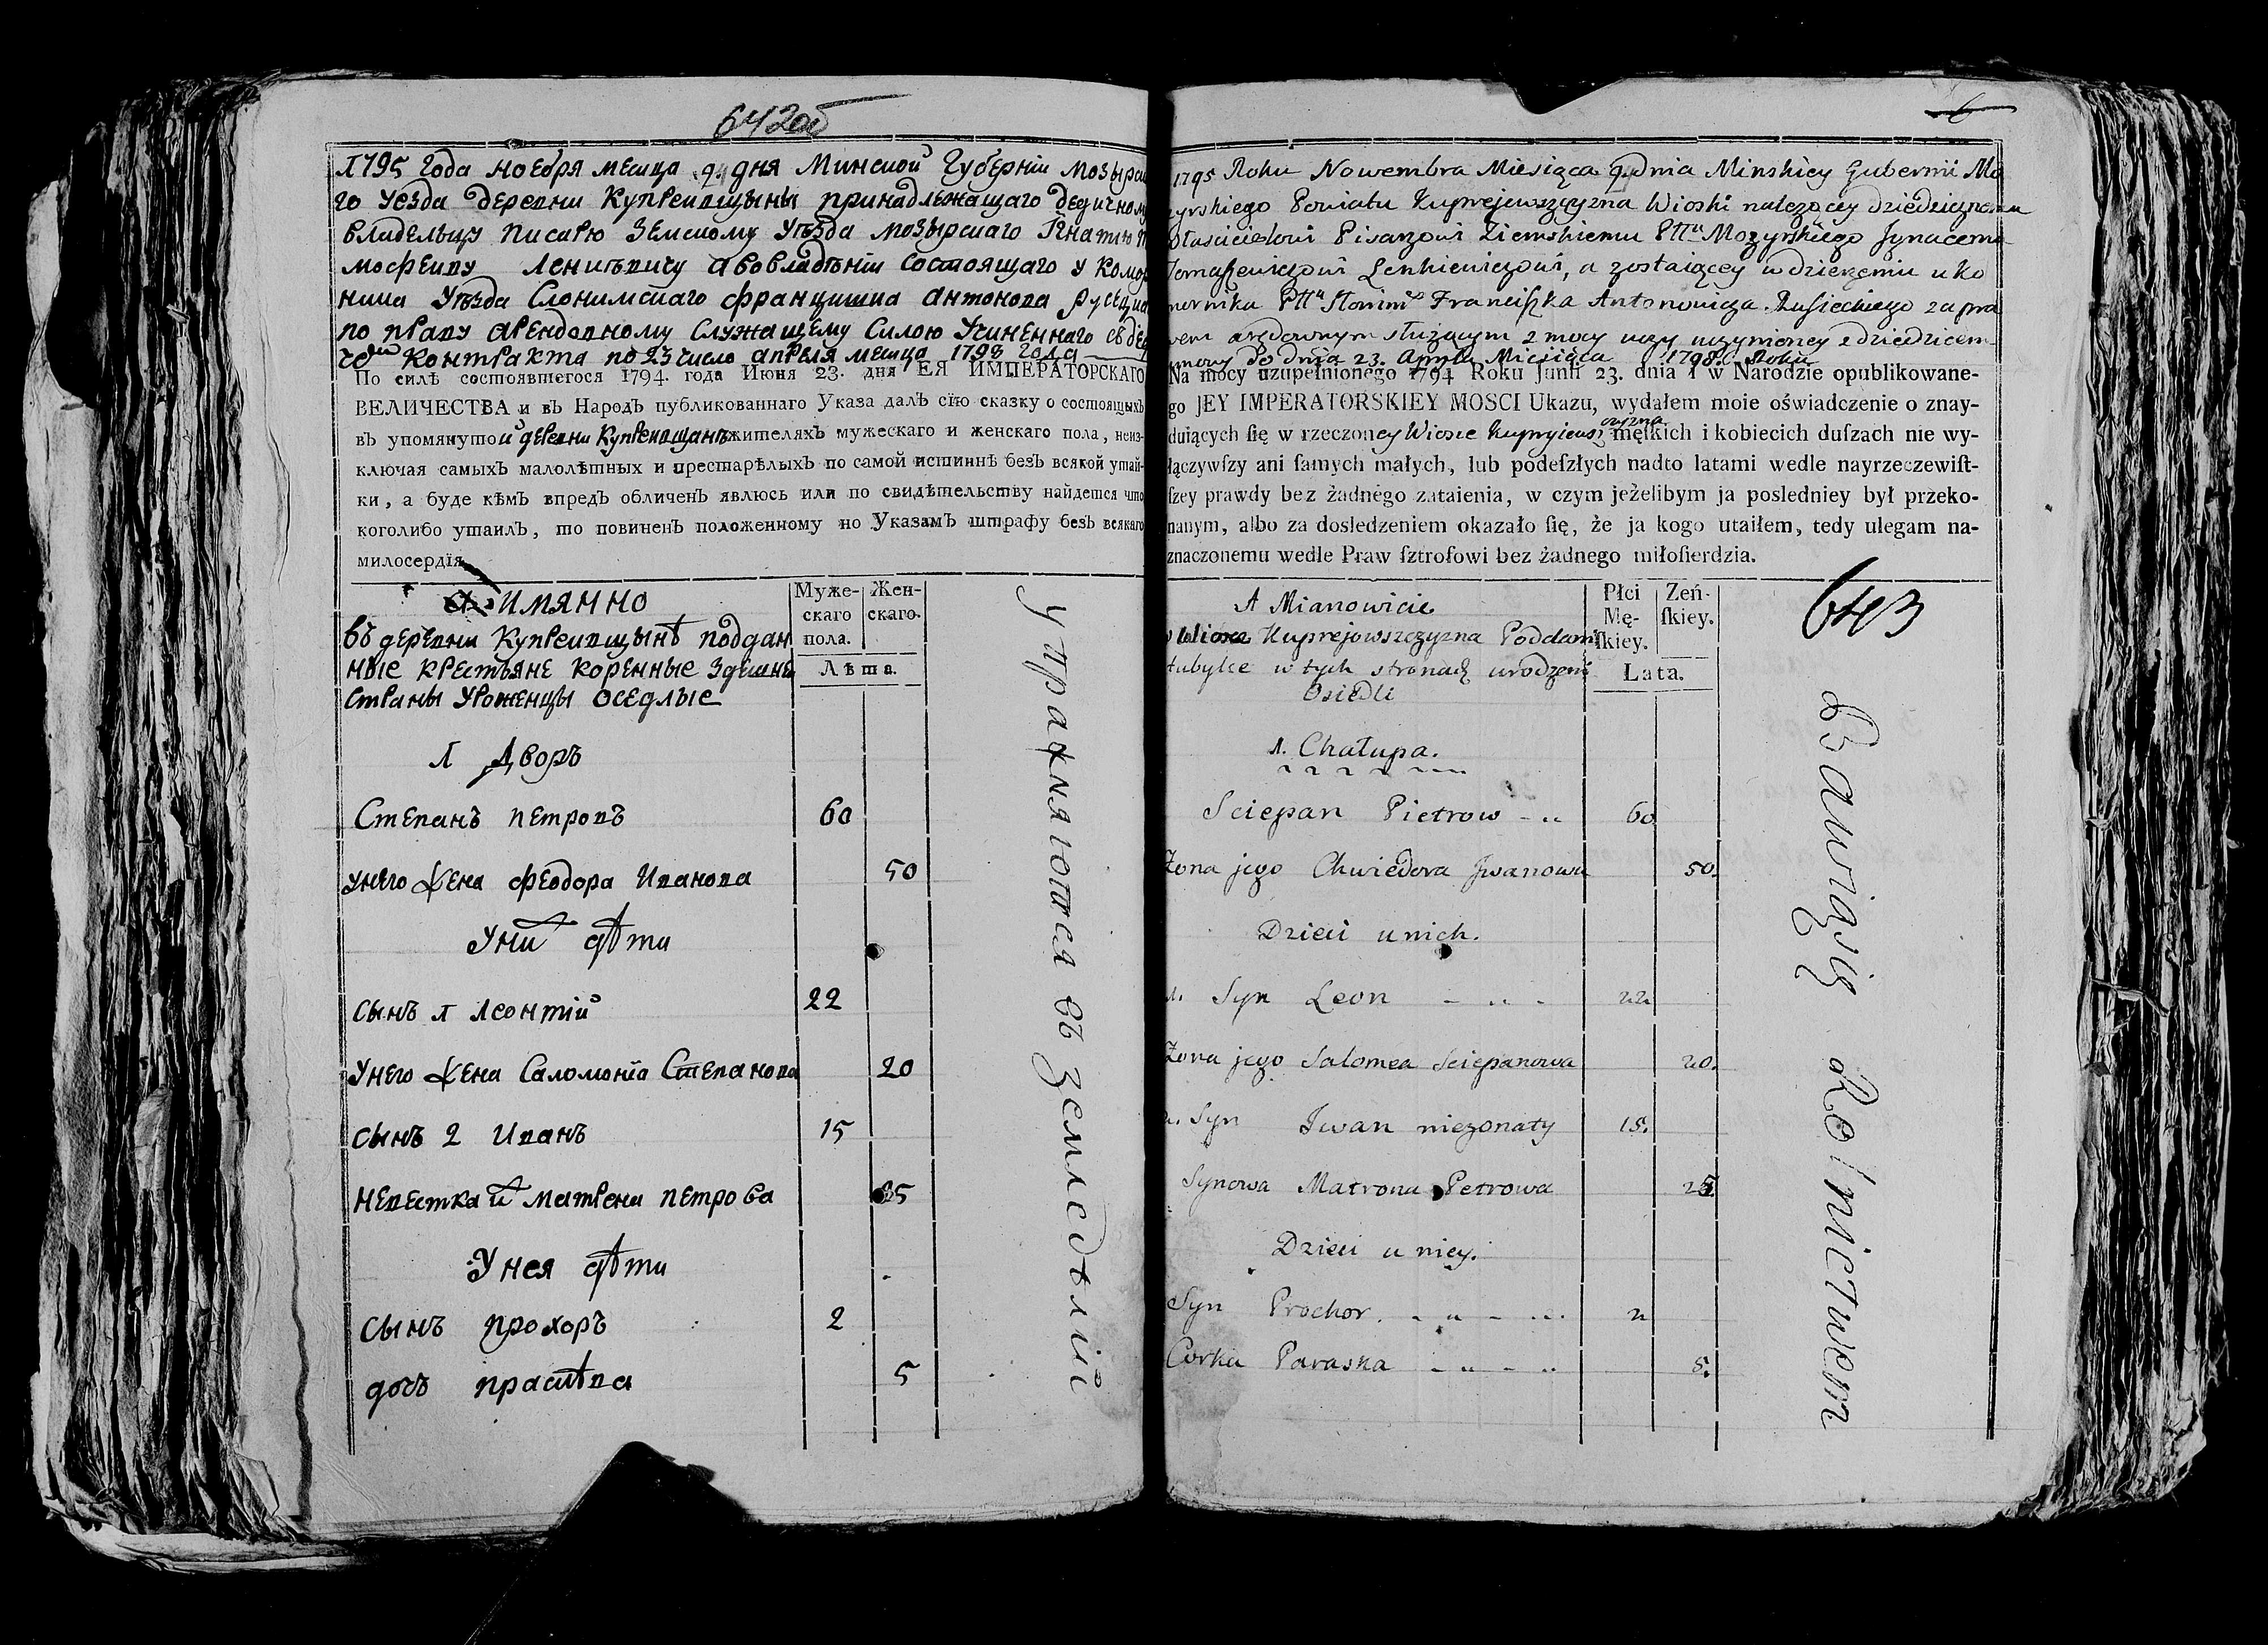 642об
1795 года ноебря месца 9. дня Минской Губерніи мозырска
го уезда деревни Купреивщыны принадлежащаго дедичному
владельцу писарю Земскому Уѣзда мозырскаго Игнатию
Ленкѣвичу а во владѣніи состоящаго у комор
ника Уѣзда Слонимскаго францишка антонова русецка
по праву арендовному служащему Силою Учиненнаго съ дед
контракта по 23 число апреля месца 1798 года
По силѣ состоявшегося 1794. года Июня 23. дня ЕЯ ИМПЕРАТОРСКАГО
ВЕЛИЧЕСТВА и въ Народъ публикованнаго Указа далъ сію сказку о состоящыхъ
въ упомянутой деревни Купреивщанѣ жителяхъ мужескаго и женскаго пола, неиз-
ключая самыхъ малолѣтныхъ и престарѣлыхъ по самой истиннѣ безъ всякой утай-
ки, а буде кѣмъ впредъ обличенъ явлюсь или по свидѣтельству найдется что
коголибо утаилъ, то повиненъ положенному по Указамъ штрафу безъ всякаго
милосердія
А имянно
Муже-
скаго
пола.
Жен-
скаго.
Лѣта.
въ деревни Купреивщынѣ поддан
ные крестьяне коренные здешне
страны уроженцы оседлые
1 Дворъ
Степанъ петровъ 60
унего жена феодора Иванова 50
Уних дѣти
сынъ 1 леонтій 22
унего жена Саломонія Степанова 20
сынъ 2 Иванъ 15
невестка их матрена петрова 25
Унея дѣти
сынъ прохоръ 2
дочъ прасковѣа 5
упражняются въ земледѣлій
6
1795 Roku Nowembra Miesiąca 9. dnia Minskiey Gubernii Mo
zyrskiego Powiatu Kuprejewszczyzna Wioski należącey dziedzicznemu
włascicielowi Pisarzowi Ziemskiemu Pttu Mozyrskiego Jgnacemu
Tomaszewiczowi Lenkiewiczowi, a zostaiącey w dzierzeniu u Ko
mornika Pttu Słonimo Franciszka Antonowicza Rusieckiego za pra
wem arędownym służącym z mocy uczynioney z dziedzicem
umowy do dnia 23. Aprila Miesiąca 1798. Roku
Na mocy uzupełnionego 1794 Roku Junii 23. dnia i w Narodzie opublikowane-
go JEY IMPERATORSKIEY MOSCI Ukazu, wydałem moie oświadczenie o znay-
duiących się w rzeczoney Wiosce Kupryiewszczyzna męskich i kobiecich duſzach nie wy-
łączywſzy ani ſamych małych, lub podeſzłych nadto latami wedle nayrzeczewiſt-
ſzey prawdy bez żadnego zataienia, w czym jeżelibym ja posledniey był przeko-
nanym, albo za dosledzeniem okazało ſię, że ja kogo utaiłem, tedy ulegam na-
znaczonemu wedle Praw ſztrofowi bez żadnego miłoſierdzia.
643
A Mianowicie
Płci
Mę-
ſkiey.
Zeń-
ſkiey.
Lata.
w Wiosce Kuprejowszczyzna Poddani
tubylce w tych stronach urodzeni
Osiedli
1. Chałupa.
Sciepan Pietrow 60
Zona jego Chwiedora Jwanowa 50.
Dzieci u nich.
1. Syn Leon 22
Zona jego Salomea Sciepanowa 20.
2. Syn Iwan niezonaty 15.
Synowa Matrona Petrowa 25
Dzieci u niey.
Syn Prochor. 2
Corka Paraska 5.
Bawiąsię Rolnictwem